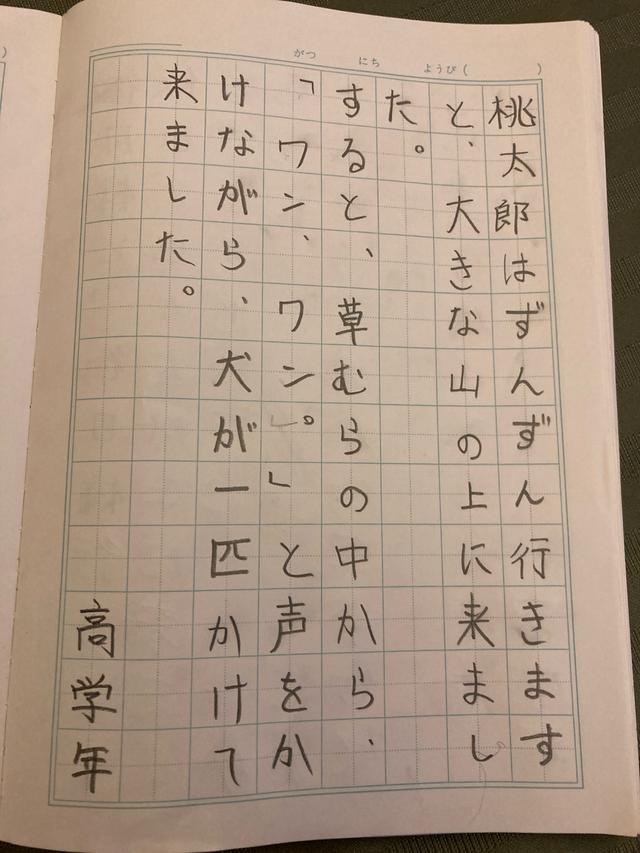 がつ にち ようび( )
桃太郎はずんずん行きます
と、大きな山の上に来まし
た。
すると、草むらの中から、
「ワン、ワン。」と声をか
けながら、犬が一匹かけて
来ました。
高学年